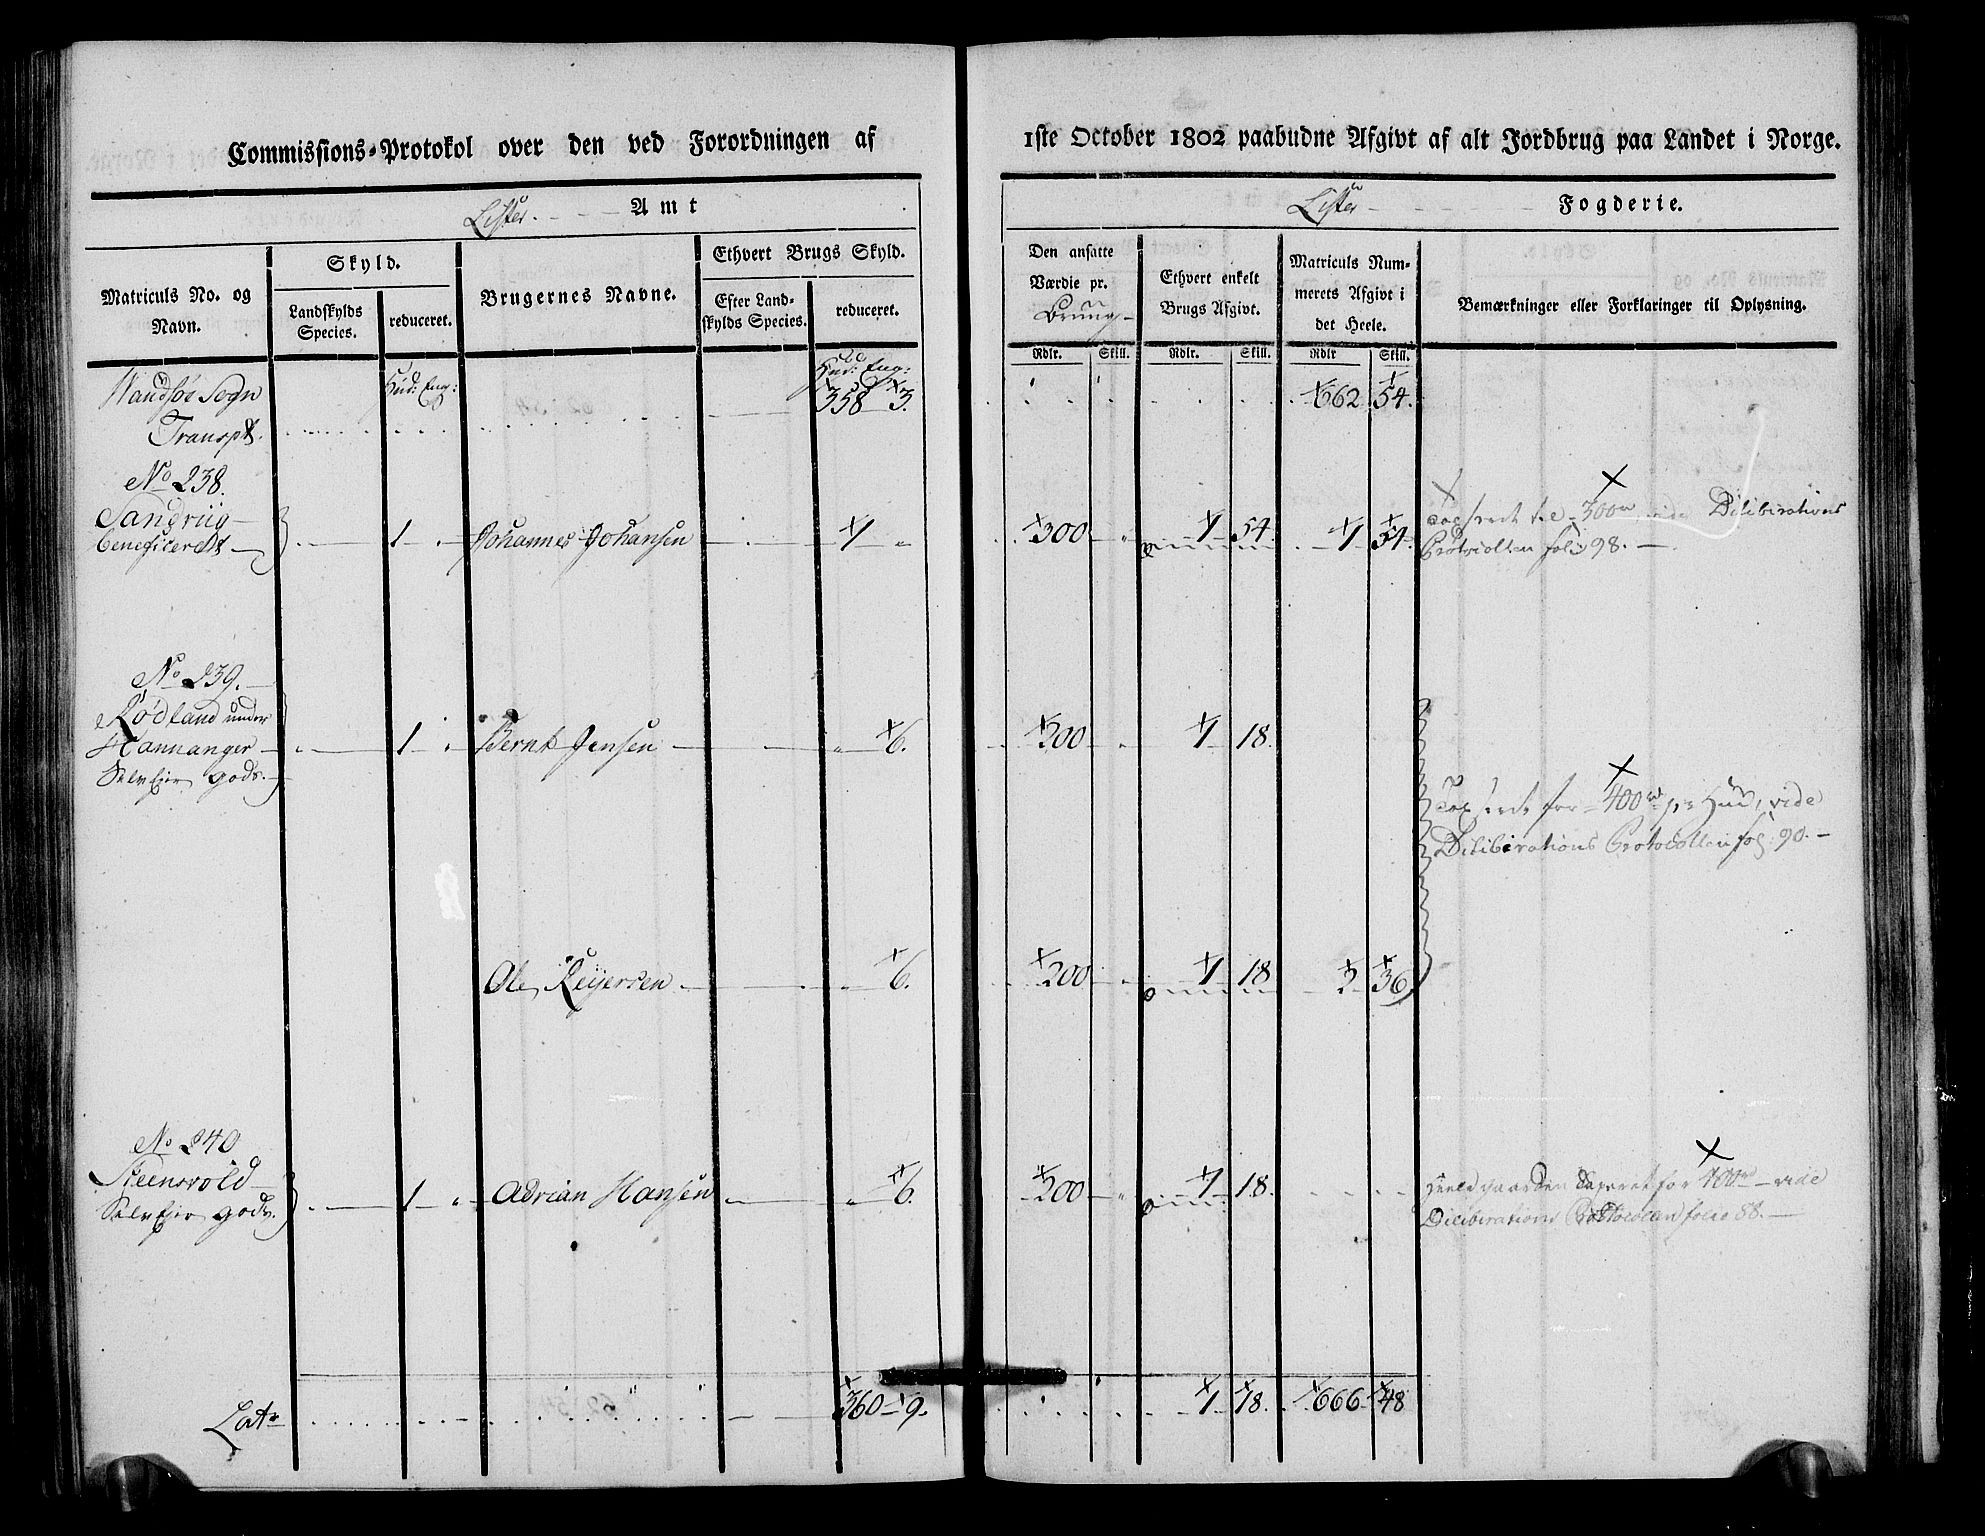 Commissions-Protokol over den ved Forordningen af
1ste October 1802 paabudne Afgivt af alt Jordbrug paa Landet i Norge.
Lister. Amt
Lister Fogderie.
Matriculs No. og Navn.
Skyld.
Landskylds Species.
reduceret.
Brugernes Navne.
Ethvert Brugs Skyld.
Efter Landskylds Species.
reduceret.
Den ansatte Værdie pr. Brug
Ethvert enkelt Brugs Afgivt.
Matriculs Nummerets Afgivt i det Heele.
Bemærkninger eller Forklaringer til Oplysning.
Rdlr. Skill. Rdlr. Skill. Rdlr Skill.
Hud: Eng: Hud: Eng:
Wandsøe Sogn 358 3. 662 54.
Transpt.
No 238.
Sandriig
beneficeret 1 Johannes Johansen 1 300 1 54. 1 54. Taxeret til 300 rd vide Deliberations
Protocollen fol: 98.
No 239.
Rødland under
Hannanger 1 Bernt Jensen 6. 200 1 18.
Selv Ejer gods.
Taxeret for 400 rd pr Hud, vide
Deliberations Protocollen fol. 90.
Ole Reijersen 6. 200 1 18 2 36
No 240
Steensvold
Selv Ejer gods. 1 Adrian Hansen 6. 200 1 18. Heele gaarden taxeret for 400 rd vide
Deliberations Protocollen folio 88.
Latr 360 9. 1 18. 666 48